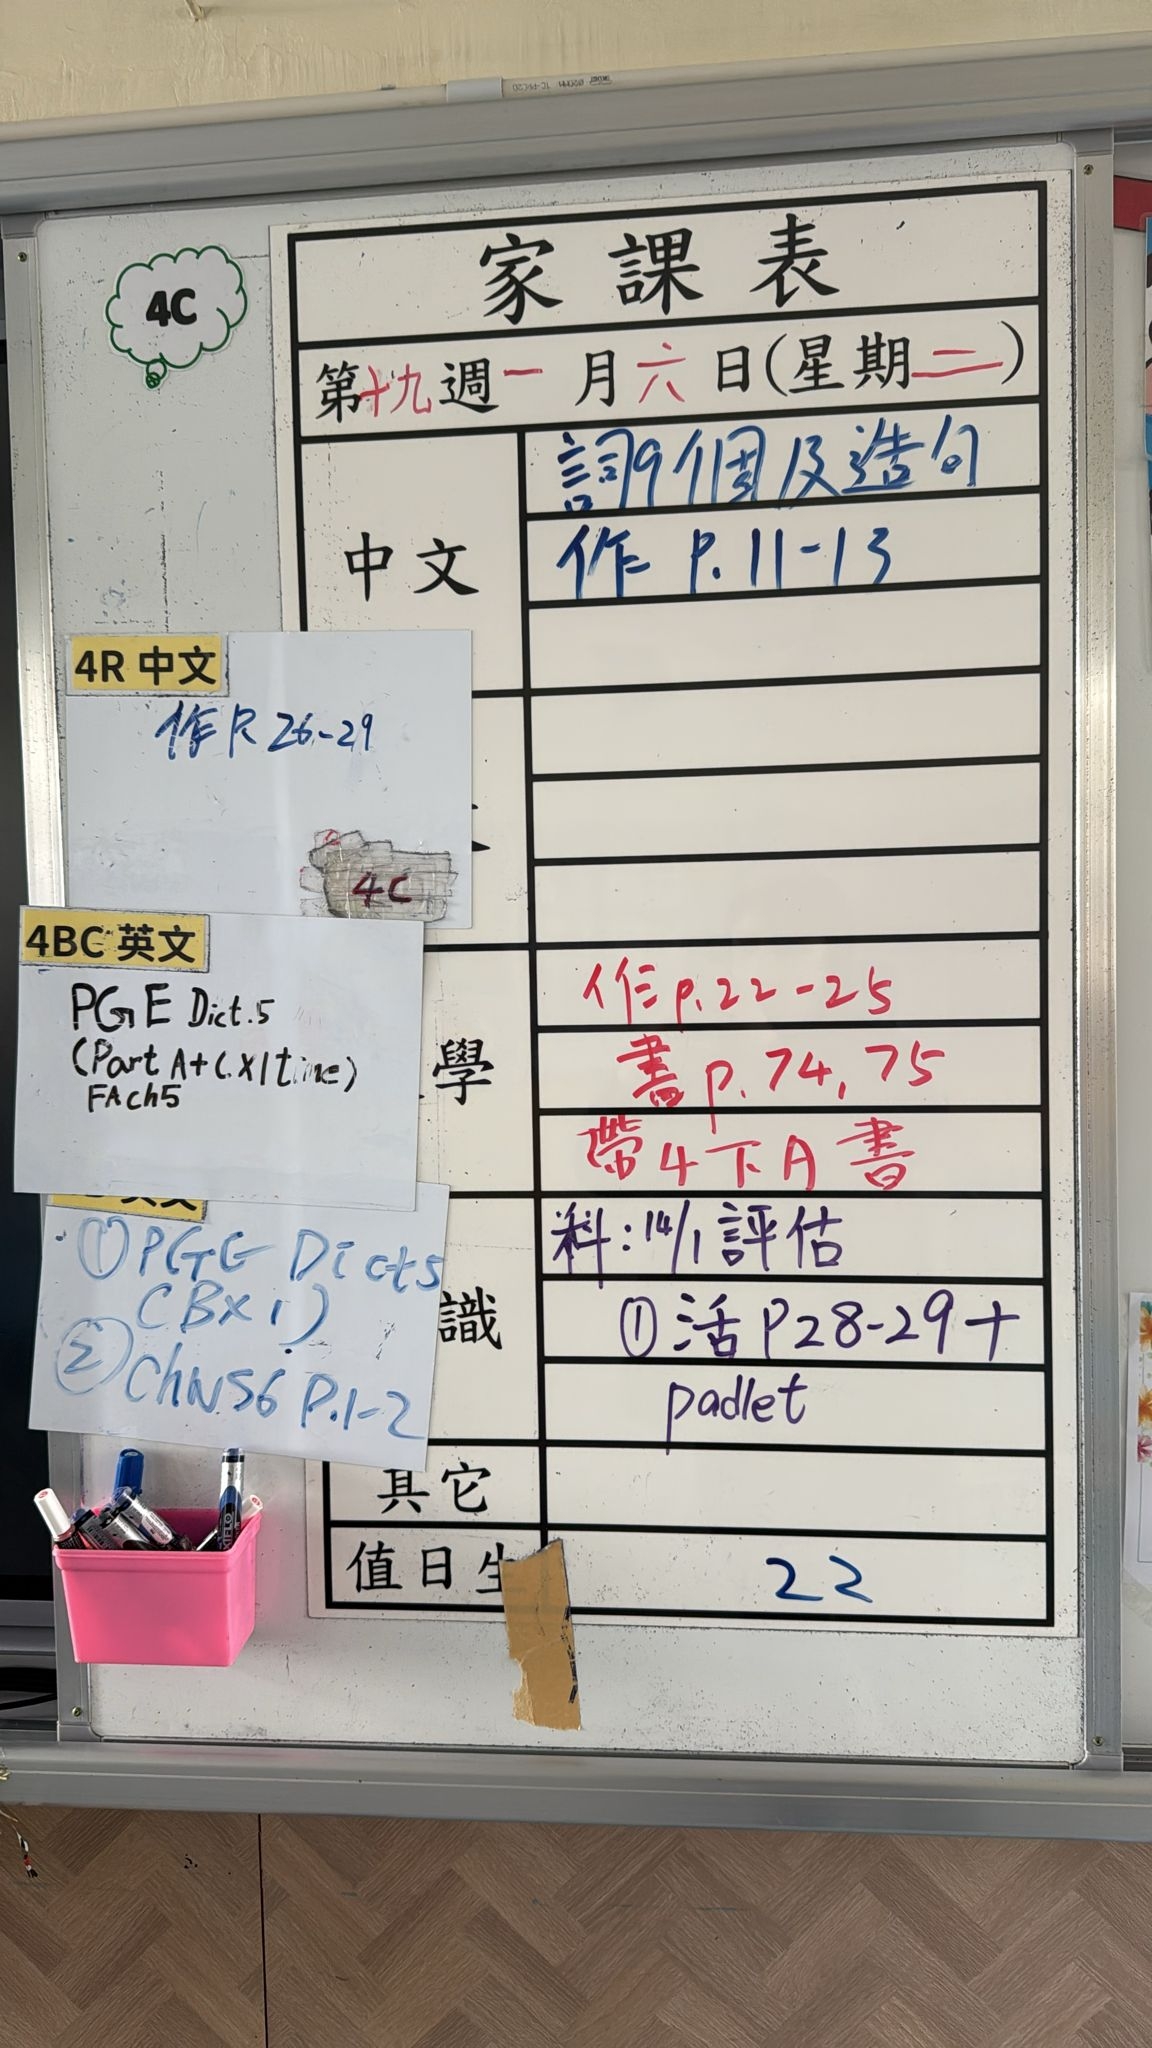 4C
家課表
第十九週一月六日(星期二)
中文
詞9個及造句
作 P.11-13
4R 中文
作 P. 26-29
4C
4BC 英文
PGE Dict.5
(Part A+C x1 time)
FAch5
學
作 p.22-25
書 p.74,75
帶4下A書
英文
① PGE Dict5
(B x 1)
② Ch1N56 P.1-2
識
科:14/1評估
①活P28-29+
padlet
其它
值日生
22